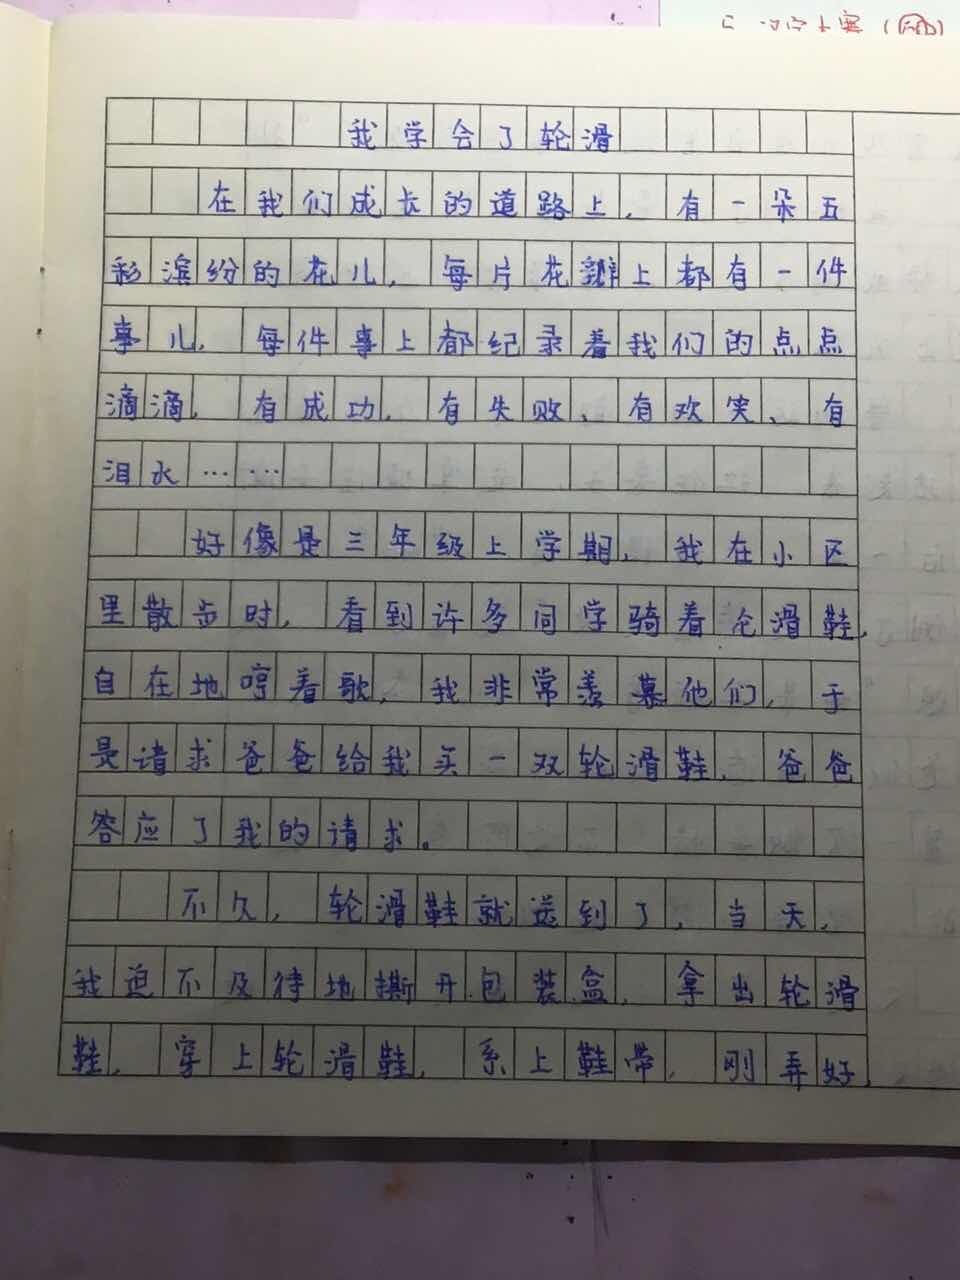 我学会了轮滑
在我们成长的道路上，有一朵五
彩滨纷的花儿，每片花瓣上都有一件
事儿，每件事上都纪录着我们的点点
滴滴，有成功，有失败、有欢笑、有
泪水……
好像是三年级上学期，我在小区
里散步时，看到许多同学骑着仑滑鞋，
自在地哼着歌，我非常羡慕他们，于
是请求爸爸给我买一双轮滑鞋，爸爸
答应了我的请求。
不久，轮滑鞋就送到了，当天，
我迫不及待地撕开包装盒，拿出轮滑
鞋，穿上轮滑鞋，系上鞋带，刚弄好，